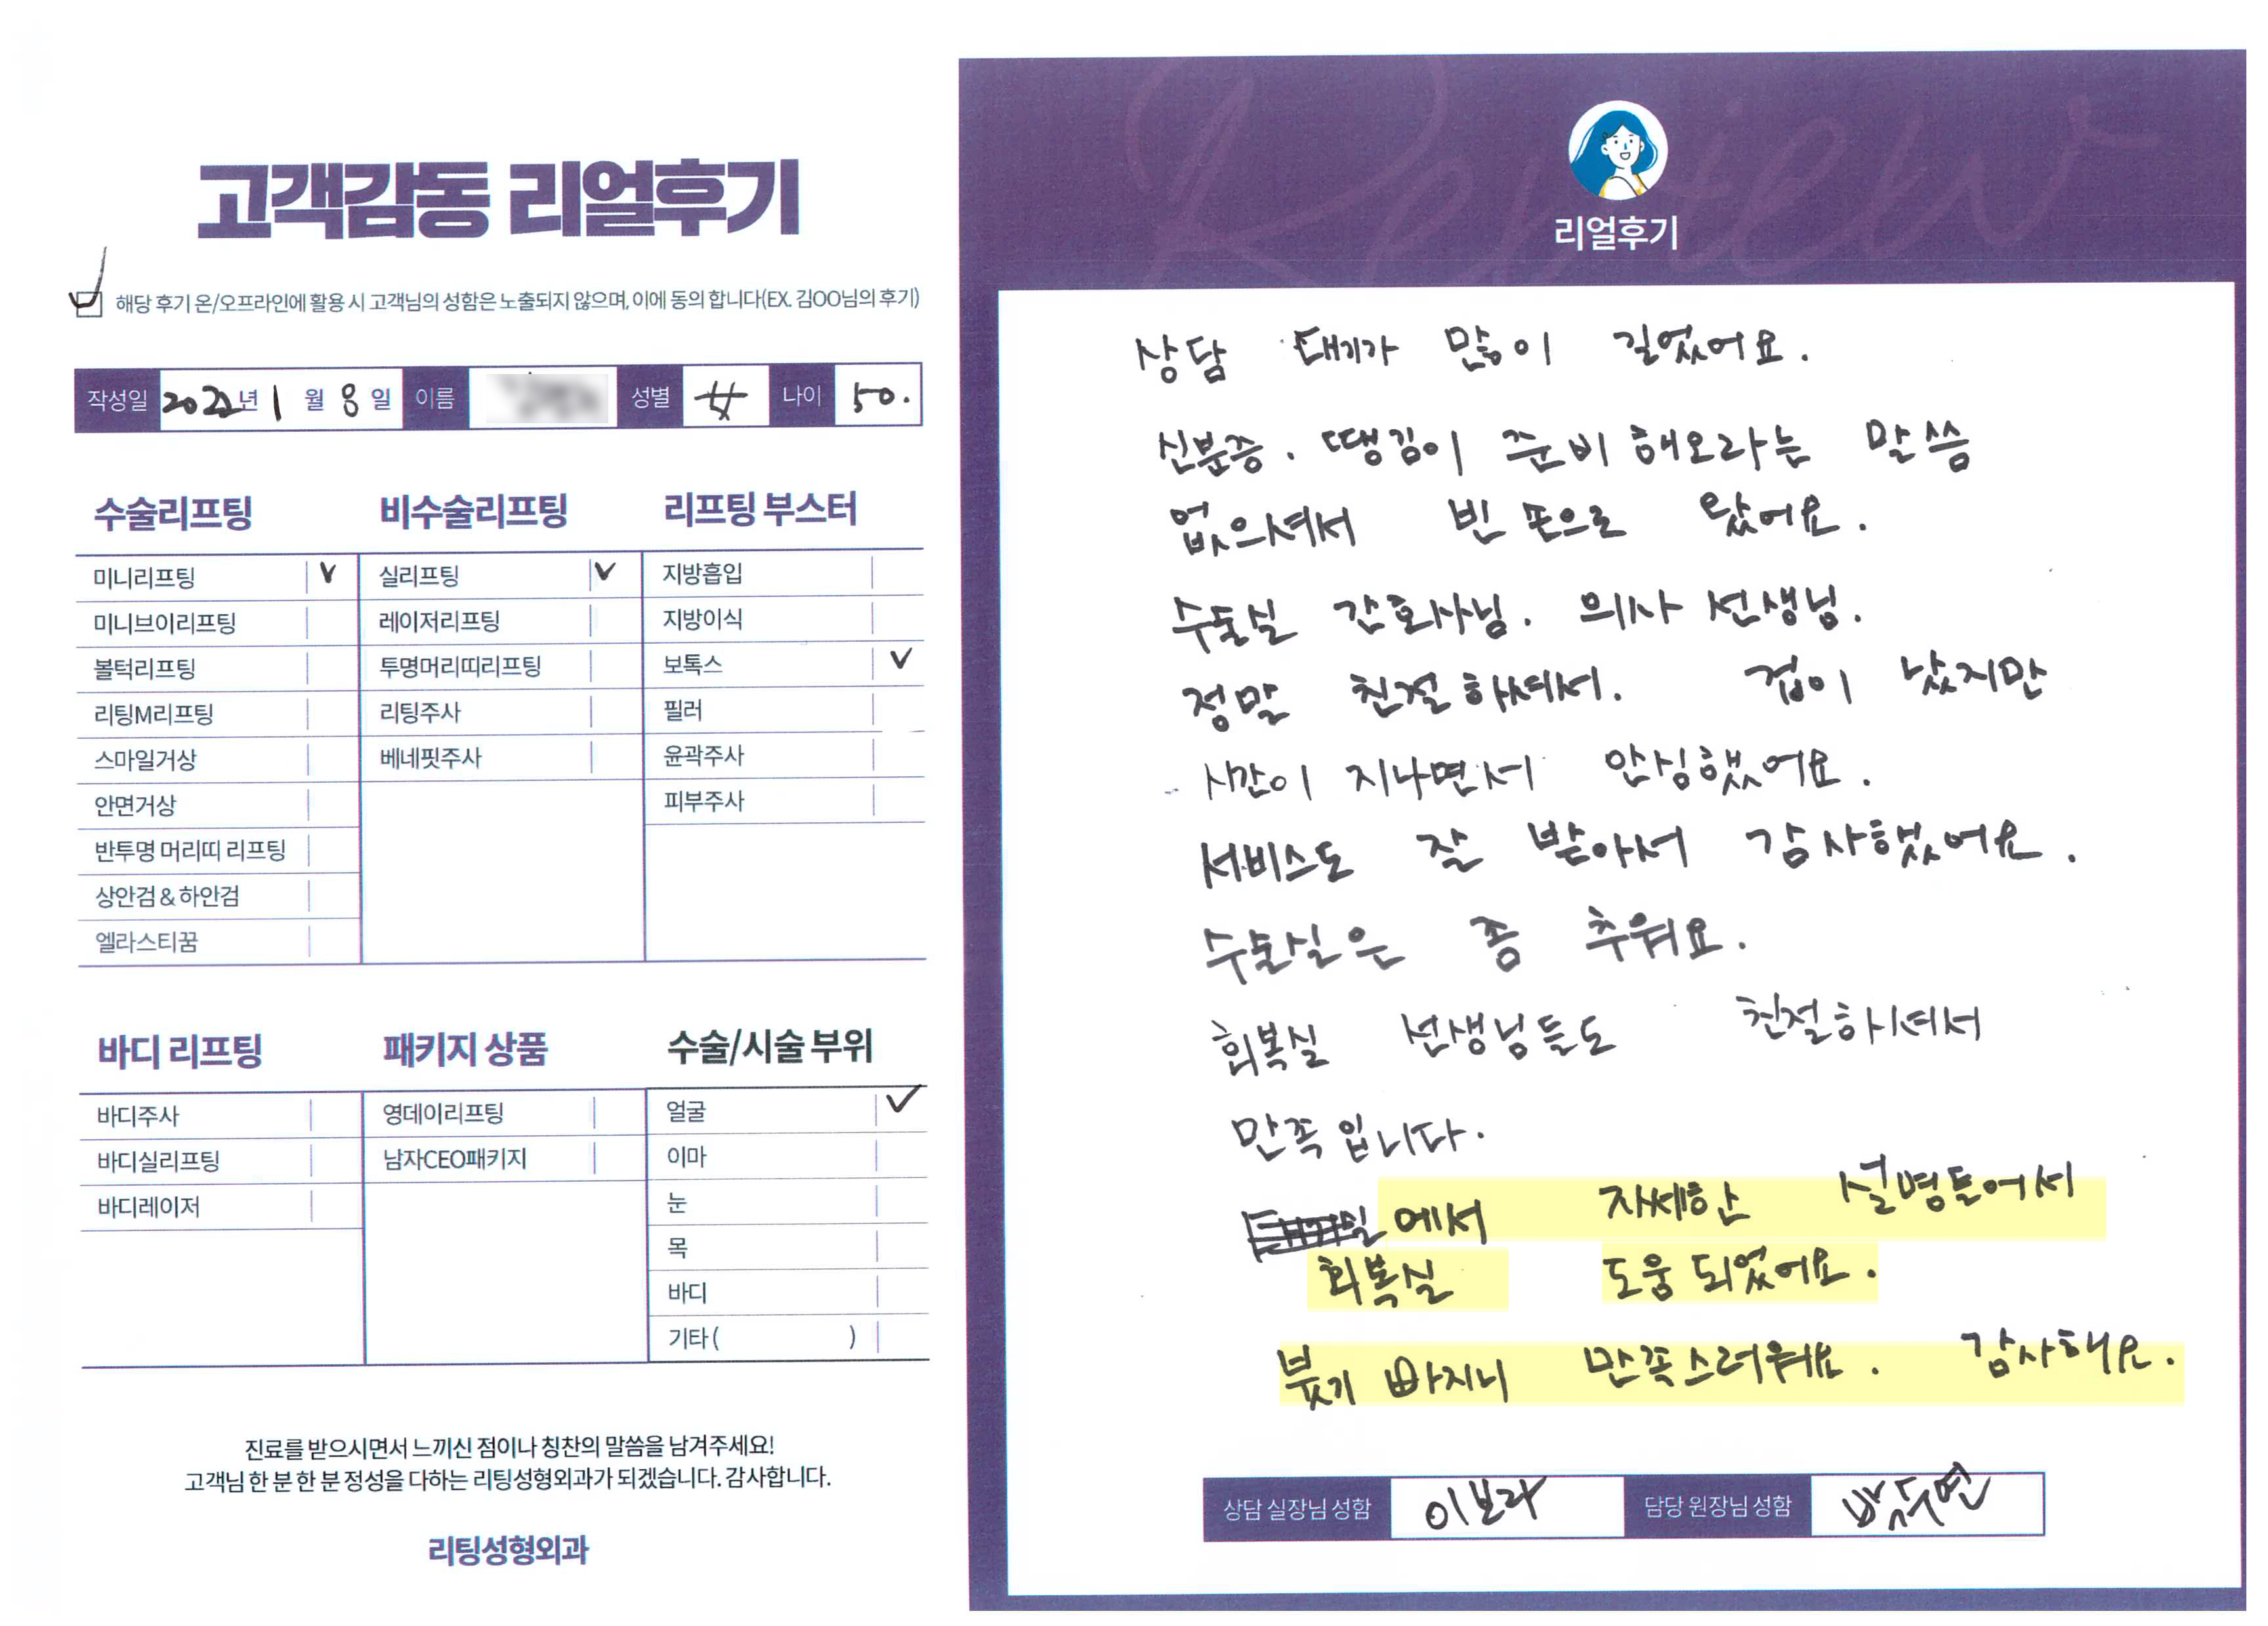 고객감동 리얼후기
해당 후기 온/오프라인에 활용 시 고객님의 성함은 노출되지 않으며, 이에 동의 합니다(EX. 김OO님의 후기)
작성일 2022년 1월 8일 이름 성별 女 나이 50.
수술리프팅
미니리프팅 ∨
미니브이리프팅
볼턱리프팅
리팅M리프팅
스마일거상
안면거상
반투명 머리띠 리프팅
상안검 & 하안검
엘라스티꿈
비수술리프팅
실리프팅 ∨
레이저리프팅
투명머리띠리프팅
리팅주사
베네핏주사
리프팅 부스터
지방흡입
지방이식
보톡스 ∨
필러
윤곽주사
피부주사
바디 리프팅
바디주사
바디실리프팅
바디레이저
패키지 상품
영데이리프팅
남자CEO패키지
수술/시술 부위
얼굴 ∨
이마
눈
목
바디
기타( )
진료를 받으시면서 느끼신 점이나 칭찬의 말씀을 남겨주세요!
고객님 한 분 한 분 정성을 다하는 리팅성형외과가 되겠습니다. 감사합니다.
리팅성형외과
Review
리얼후기
상담 대기가 많이 길었어요.
신분증. 땡김이 준비해오라는 말씀
없으셔서 빈 손으로 왔어요.
수술실 간호사님. 의사 선생님.
정말 친절하셔서. 겁이 났지만
시간이 지나면서 안심했어요.
서비스도 잘 받아서 감사했어요.
수술실은 좀 추워요.
회복실 선생님들도 친절하셔서
만족입니다.
에서 자세한 설명들어서
회복실 도움 되었어요.
붓기 빠지니 만족스러워요. 감사해요.
상담 실장님 성함 이보라 담당 원장님 성함